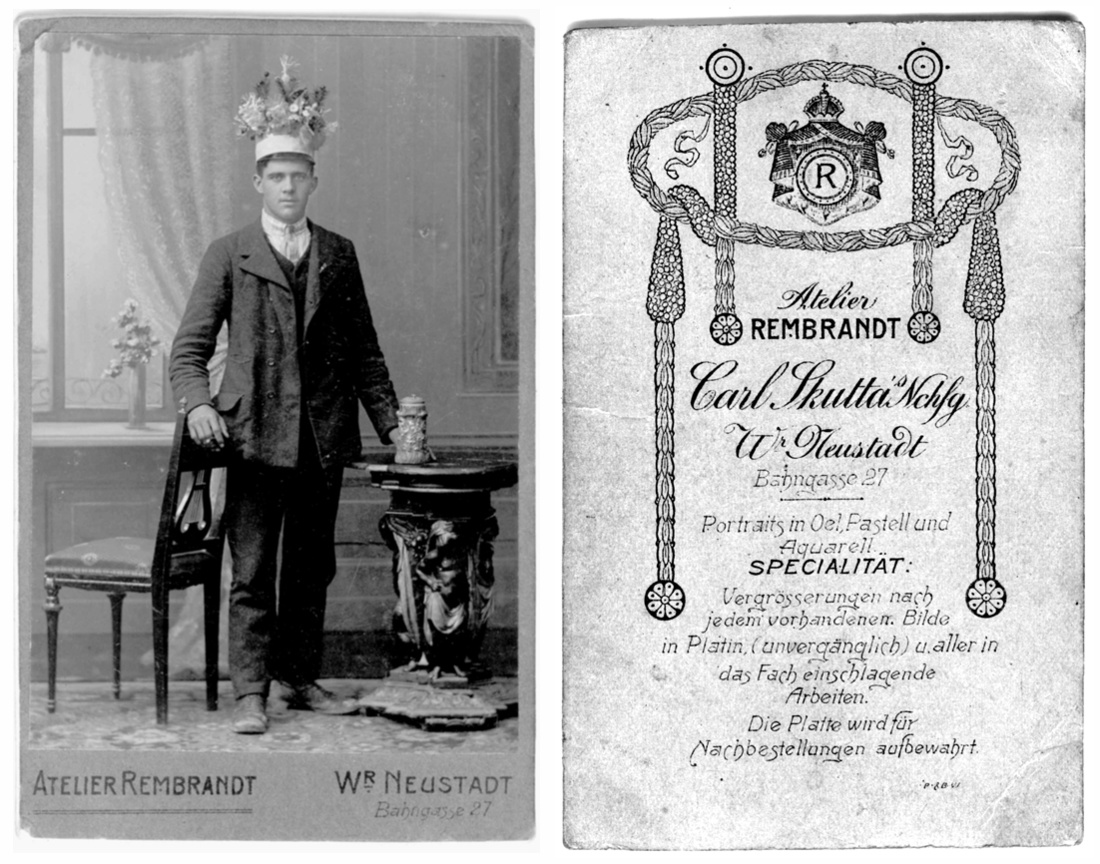 ATELIER REMBRANDT
WR NEUSTADT
Bahngasse 27
R
Atelier
REMBRANDT
Carl Skutta's Nchfg
Wr Neustadt
Bahngasse 27
Portraits in Oel, Pastell und
Aquarell.
SPECIALITÄT:
Vergrösserungen nach
jedem vorhandenen Bilde
in Platin, (unvergänglich) u. aller in
das Fach einschlagende
Arbeiten.
Die Platte wird für
Nachbestellungen aufbewahrt.